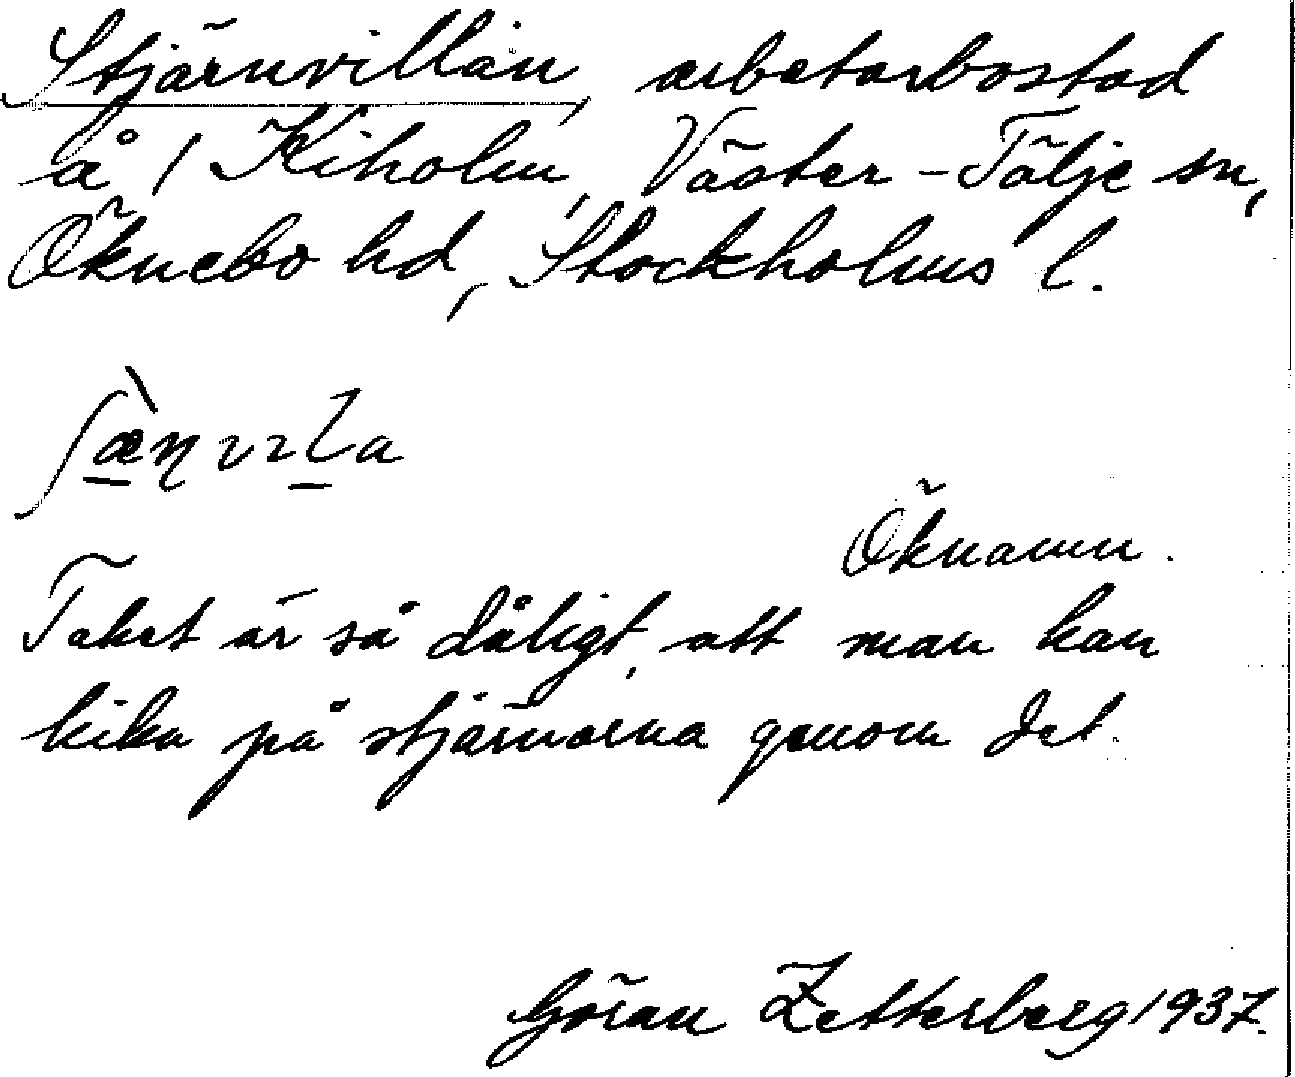 Stjärnvillan, arbetarbostad
å /1 Kiholm, Väster-Tälje sn,
Öknebo hd, Stockholms l.
Öknamn.
Taket är så dåligt, att man kan
kika på stjärnorna genom det.
Göran Zetterberg 1937.